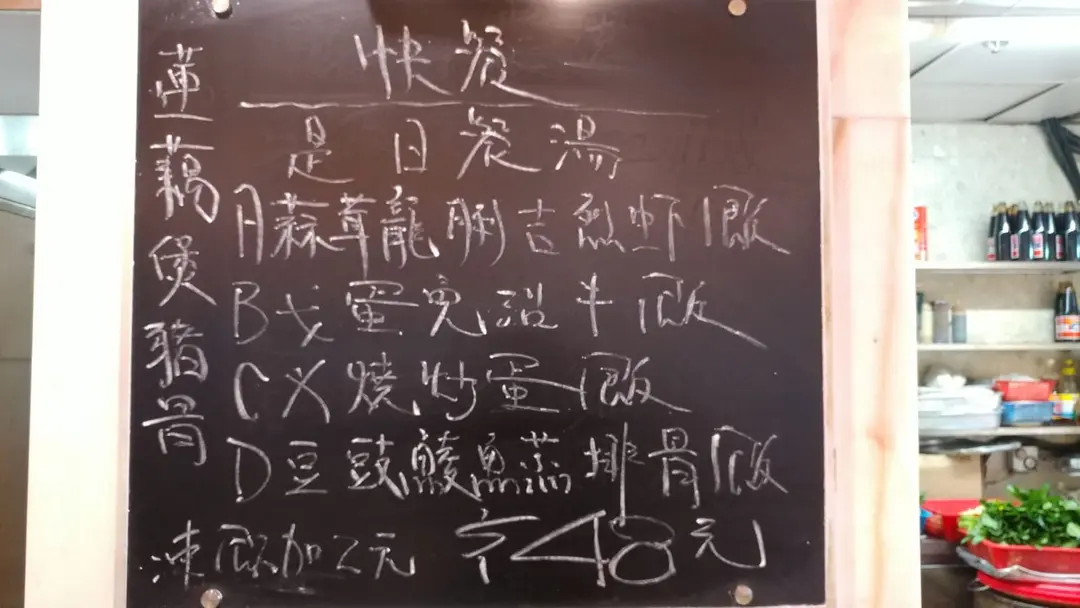 快餐
是日餐湯
蓮藕煲豬骨
A蒜茸龍脷吉烈虾飯
B戈蛋免治牛飯
C乂燒炒蛋飯
D豆豉鯪魚蒸排骨飯
凍飲加2元 $48元